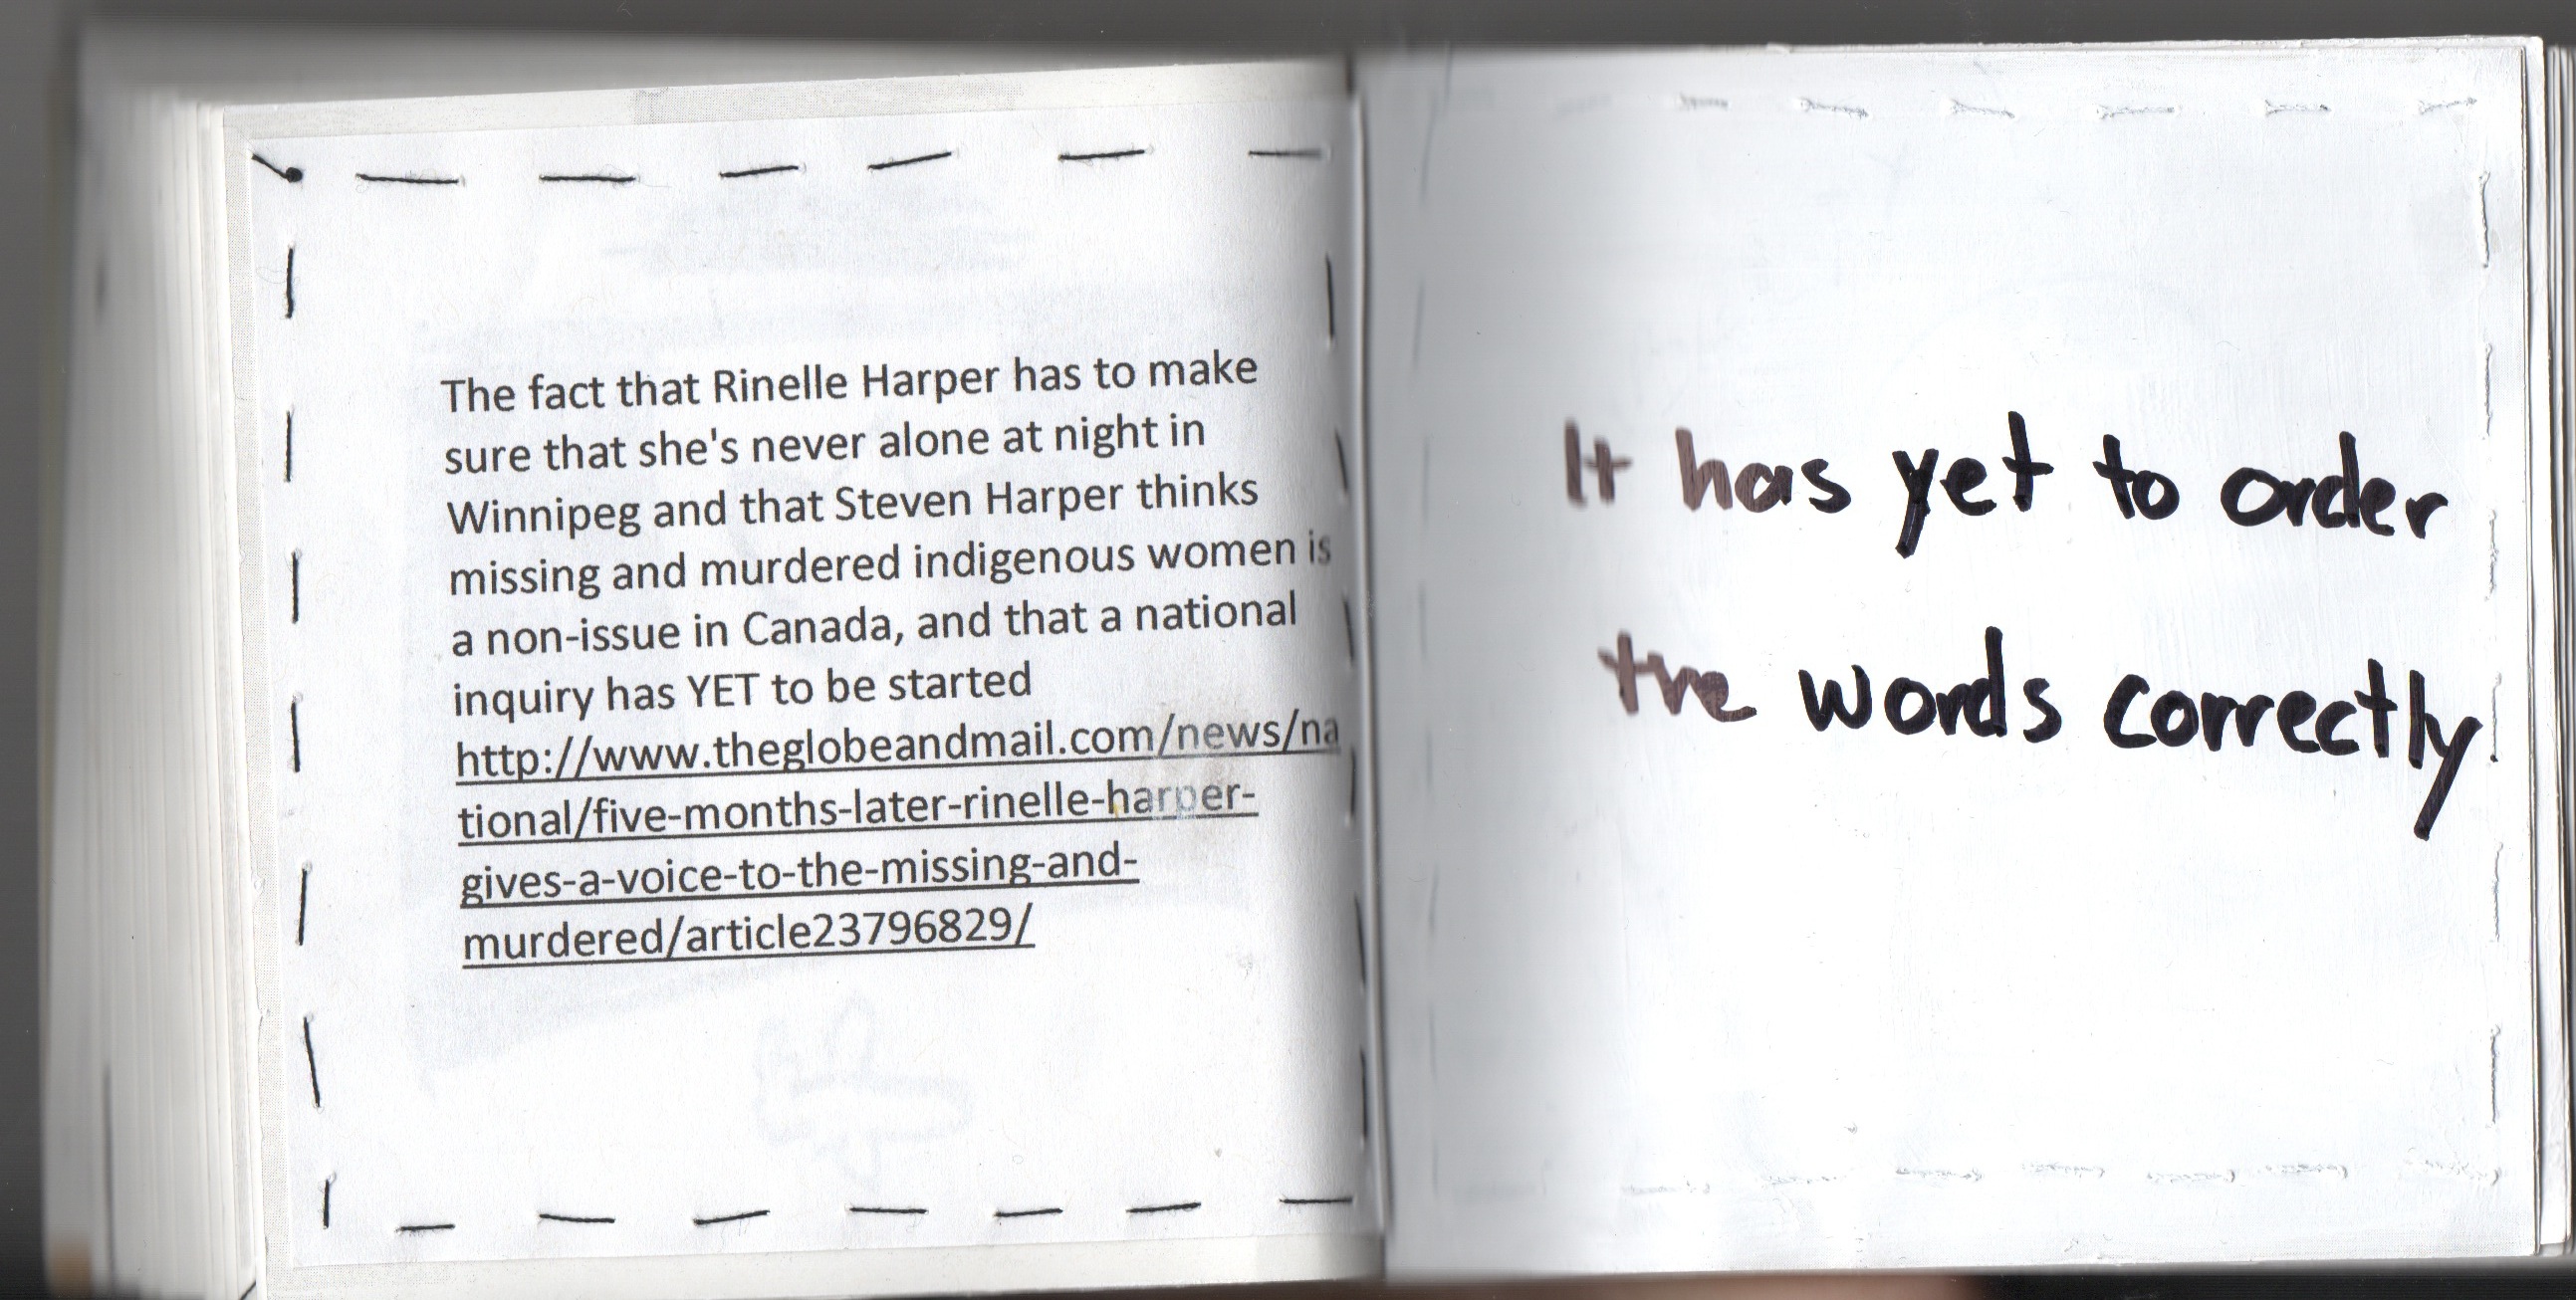 The fact that Rinelle Harper has to make
sure that she's never alone at night in
Winnipeg and that Steven Harper thinks
missing and murdered indigenous women is
a non-issue in Canada, and that a national
inquiry has YET to be started
http://www.theglobeandmail.com/news/na
tional/five-months-later-rinelle-harper-
gives-a-voice-to-the-missing-and-
murdered/article23796829/
It has yet to order
the words correctly